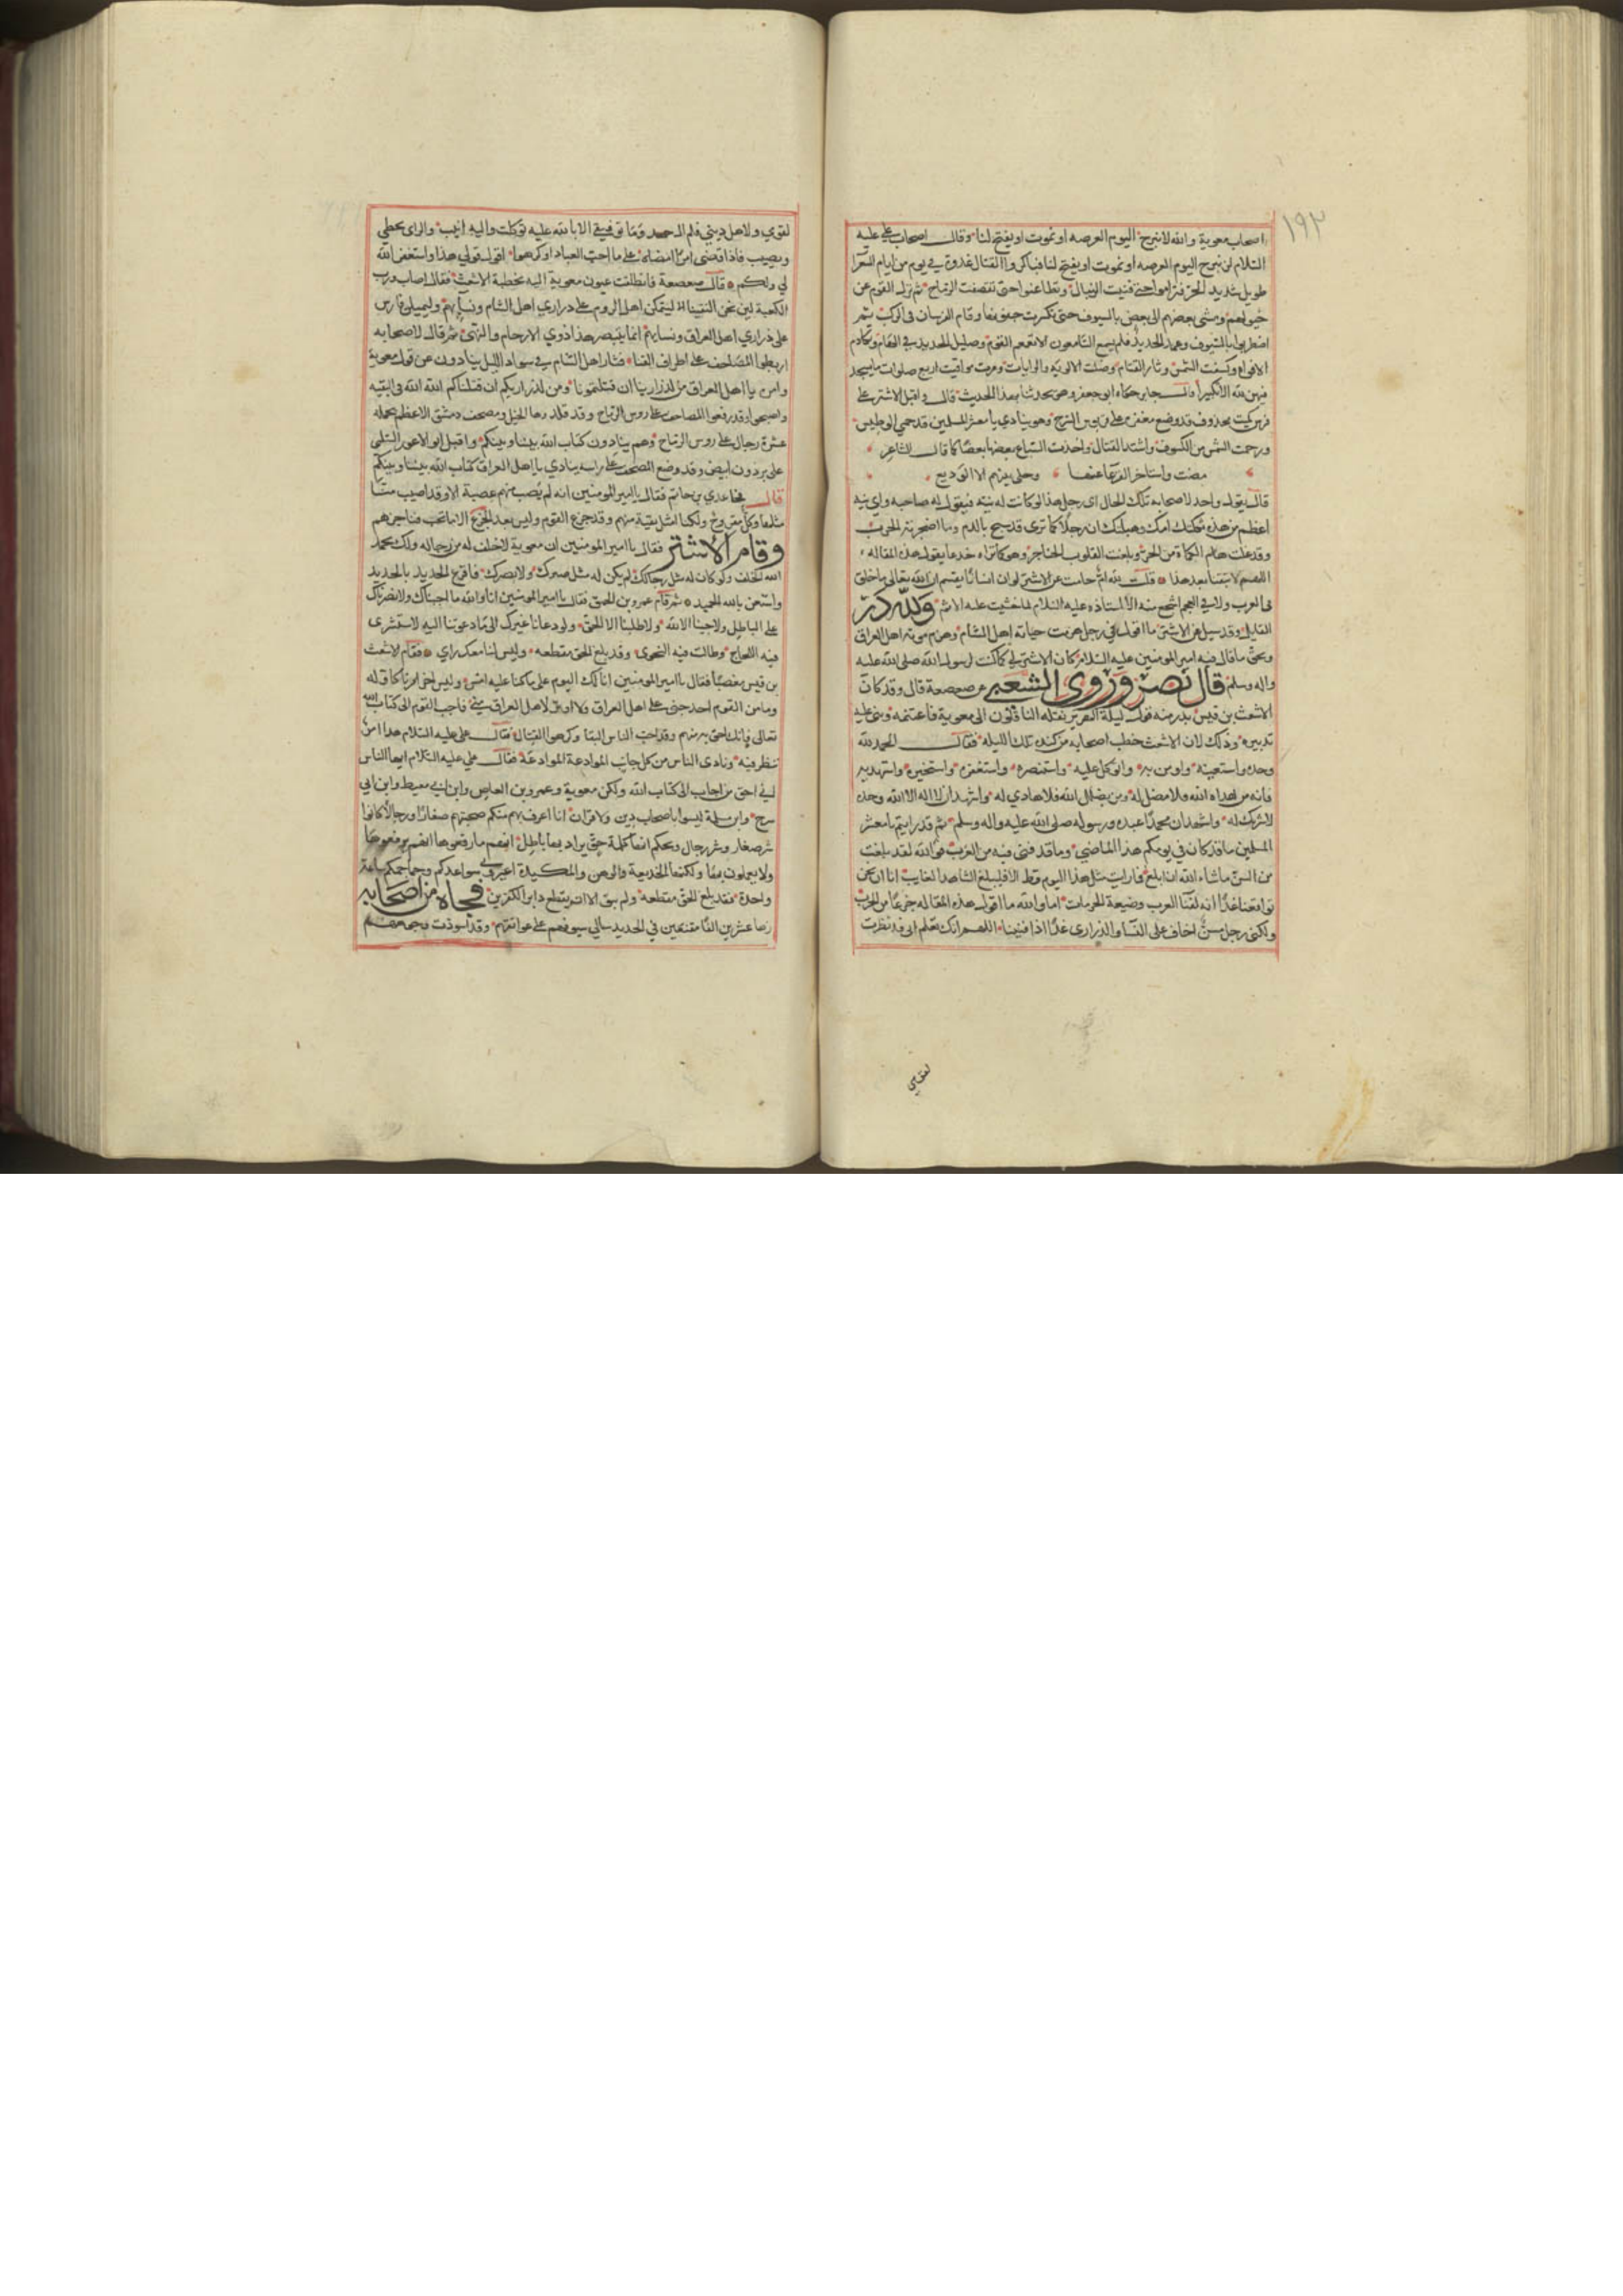 ١٩٣
اصحاب معوية والله لا نبرح اليوم العرصه او نموت او يفتح لنا وقال اصحاب على عليه
السلام لن نبرح اليوم العرصه او نموت او يفتح لنا فباكروا القتال غدوة في يوم من ايام الشعرا
طويل شديد الحر فتراموا حتى فنيت النبال وتطاعنوا حتى تقصفت الرماح ثم نزل القوم عن
خيولهم ومشى بعضهم الى بعض بالسيوف حتى تكسرت جفونها وقام الفرسان في الركب ثم
اضطربوا بالسيوف وعمد الحديد فلم يسمع السامعون الا تغمغم القوم وصليل الحديد في الهام وتكادم
الافواه وكسفت الشمس وثار القتام وضلت الالويه والرايات ومرت مواقيت اربع صلوات ما يسجد
فيهن لله الا تكبيرا قال جابر فبكى ابو جعفر وهو يحدثنا بهذا الحديث قال واقبل الاشتر على
فرس كميت محذوف قد وضع مغفره على قربوس السرج وهو ينادي يا معشر المسلمين قد حمي الوطيس
ورجعت الشمس من الكسوف واشتد القتال واخذت السباع بعضها بعضا كما قال الشاعر
مضت واستاخر القرعا عنها وخلى بينهم الا الوديع
قال يقول واحد لاصحابه تلك الحال اى رجل هذا لو كانت له نية فيقول له صاحبه واي نية
اعظم من هذه ثكلتك امك وهبلتك ان رجلا كما ترى قد سبح بالدم وما اضجرته الحرب
وقد غلت هام الكماة من الحر وبلغت القلوب الحناجر وهو كما تراه جذعا يقول هذه المقاله
اللهم لا تبقنا بعد هذا قلت لله ام قامت عن الاشتر لو ان انسانا يقسم ان الله تعالى ما خلق
في العرب ولا في العجم اشجع منه الا استاذه عليه السلام لما خشيت عليه الاثم ولله در
القايل وقد سيل عن الاشتر ما اقول في رجل هزمت حياته اهل الشام وهزم موته اهل العراق
وبحق ما قال فيه امير المومنين عليه السلام كان الاشتر لي كما كنت لرسول الله صلى الله عليه
واله وسلم قال نصر وروى الشعبي عن صعصعة قال وقد كان
الاشعث بن قيس بدر منه قول ليلة الهرير نقله الناقلون الى معوية فاغتنمه وبنى عليه
تدبيره وذلك لان الاشعث خطب اصحابه من كنده تلك الليله فقال الحمد لله
وحده واستعينه واومن به واتوكل عليه واستنصره واستغفره واستخيره واستهديه
فانه من هداه الله فلا مضل له ومن يضلل الله فلا هادي له واشهد ان لا اله الا الله وحده
لا شريك له واشهد ان محمدا عبده ورسوله صلى الله عليه واله وسلم ثم قد رايتم يا معشر
المسلمين ما قد كان في يومكم هذا الماضي وما قد فنى فيه من العرب فوالله لقد بلغت
من السن ما شاء الله ان ابلغ فما رايت مثل هذا اليوم قط الا فليبلغ الشاهد الغايب انا ان نحن
تواقفنا غدا انه لفنا العرب وضيعة الحرمات اما والله ما اقول هذه المقاله جزعا من الحرب
ولكني رجل مسن اخاف على النسا والذراري غدا اذا فنينا اللهم انك تعلم اني قد نظرت
لقومي
لقومي ولاهل ديني فلم ال جهد وما توفيقي الا بالله عليه توكلت واليه انيب والراى يخطي
ويصيب فاذا قضى امرا امضاه على ما احب العباد او كرهوا اقول قولي هذا واستغفر الله
لي ولكم قال صعصعة فانطلقت عيون معوية اليه بخطبة الاشعث فقال اصاب ورب
الكعبة لين نحن التقينا ليتمكن اهل الروم على ذراري اهل الشام ونسايهم وليميلن فارس
على ذراري اهل العراق ونسايهم انما يبصر هذا ذوي الارحام والنهى ثم قال لاصحابه
اربطوا المصاحف على اطراف القنا فثار اهل الشام في سواد الليل ينادون عن قول معوية
وامره يا اهل العراق من لذرارينا ان قتلتمونا ومن لذراريكم ان قتلناكم الله الله فى البقيه
واصبحوا وقد رفعوا المصاحف على روس الرماح وقد قلدوها الخيل ومصحف دمشق الاعظم يحمله
عشرة رجال على روس الرماح وهم ينادون كتاب الله بيننا وبينكم واقبل ابو الاعور السلمى
على برذون ابيض وقد وضع المصحف على راسه ينادي يا اهل العراق كتاب الله بيننا وبينكم
قال فجا عدي بن حاتم فقال يا امير المومنين انه لم يصب منهم عصبة الا وقد اصيب منا
مثلها وكل مقروح ولكنا امثل بقية منهم وقد جزع القوم وليس بعد الجزع الا ما تحب فناجزهم
وقام الاشتر فقال يا امير المومنين ان معوية لا خلف له من رجاله ولك بحمد
الله الخلف ولو كان له مثل رجالك لم يكن له مثل صبرك ولا نصرك فاقرع الحديد بالحديد
واستعن بالله الحميد ثم قام عمرو بن الحمق فقال يا امير المومنين انا والله ما اجبناك ولا نصرناك
على الباطل ولا اجبنا الا الله ولا طلبنا الا الحق ولو دعانا غيرك الى ما دعوتنا اليه لاستشرى
فيه اللجاج وطالت فيه النجوى وقد بلغ الحق مقطعه وليس لنا معك راي فقام الاشعث
بن قيس مغضبا فقال يا امير المومنين انا لك اليوم على ما كنا عليه امس وليس اخر امرنا كاوله
وما من القوم احد احنى على اهل العراق ولا اوتر لاهل العراق مني فاجب القوم الى كتاب الله
تعالى فانك احق به منهم وقد احب الناس البقا وكرهوا القتال فقال على عليه السلام هذا امر
ننظر فيه ونادى الناس من كل جانب الموادعة الموادعة فقال علي عليه السلام ايها الناس
اني احق من اجاب الى كتاب الله ولكن معوية وعمرو بن العاص وابن ابي معيط وابن ابي
سرح وابن مسلمة ليسوا باصحاب دين ولا قران انا اعرف بهم منكم صحبتهم صغارا ورجالا فكانوا
شر صغار وشر رجال ويحكم انها كلمة حق يراد بها باطل انهم ما رفعوها انهم يعرفونها
ولا يعملون بها ولكنها الخديعة والوهن والمكيدة اعيروني سواعدكم وجماجمكم ساعة
واحدة فقد بلغ الحق مقطعه ولم يبق الا ان يقطع دابر الكافرين فجاه من اصحابه
زها عشرين الفا مقنعين في الحديد سالي سيوفهم على عواتقهم وقد اسودت وجوههم